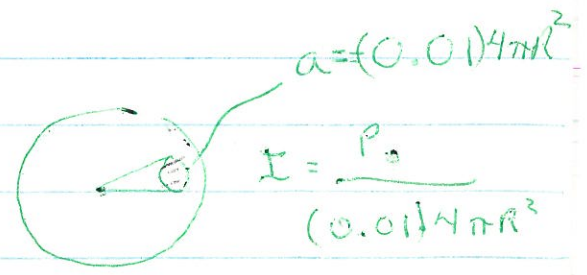 a=(0.01)4πR²
I = P₀ / (0.01)4πR²